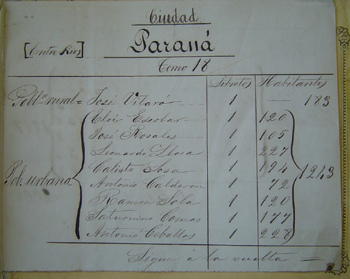 Ciudad
[Entre Rios]
Paraná
Tomo 18
Libretos Habitantes
Pobl.ⁿ rural = José Vilaró 1 — 183
Eloir Escobar 1 120
José Rosales 1 105
Leonardo Llosa 1 227
Pob. urbana Calisto Sosa 1 194 1243
Antonio Calderon 1 72
Ramon Sola 1 120
Saturnino Comas 1 177
Antonio Ceballos 1 228
Sigue á la vuelta =